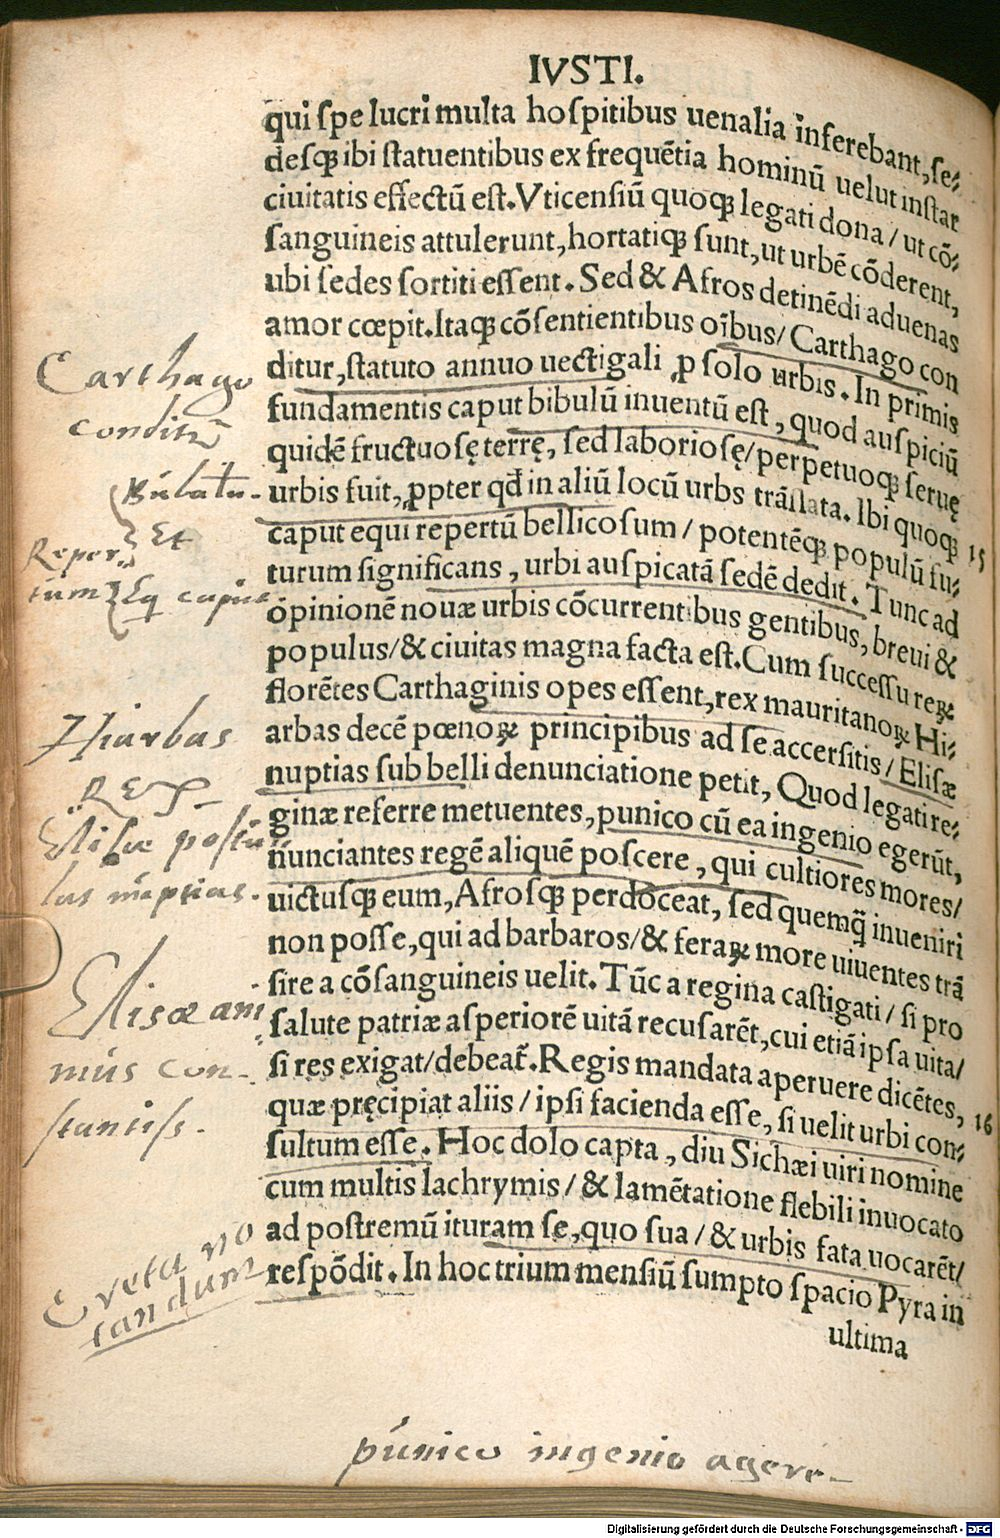 IVSTI.
qui ſpe lucri multa hoſpitibus uenalia inferebant, ſe⸗
deſq́ꝫ ibi ſtatuentibus ex frequẽtia hominũ uelut inſtar
ciuitatis effectũ eſt. Vticenſiũ quoqꝫ legati dona / ut cõ⸗
ſanguineis attulerunt, hortatiqꝫ ſunt, ut urbẽ cõderent,
ubi ſedes ſortiti eſſent. Sed & Afros detinẽdi aduenas
amor cœpit. Itaqꝫ cõſentientibus oĩbus / Carthago con
ditur, ſtatuto annuo uectigali ꝓ ſolo urbis. In primis
fundamentis caput bibulũ inuentũ eſt, quod auſpiciũ
quidẽ fructuoſę terrę, ſed laborioſę / perpetuoqꝫ ſeruę
urbis fuit, ꝓpter qđ in aliũ locũ urbs trãſlata. Ibi quoqꝫ
caput equi repertũ bellicoſum / potentẽqꝫ populũ fu⸗ 15
turum ſignificans, urbi auſpicatã ſedẽ dedit. Tunc ad
opinionẽ nouæ urbis cõcurrentibus gentibus, breui &
populus / & ciuitas magna facta eſt. Cum ſucceſſu reꝝ
florẽtes Carthaginis opes eſſent, rex mauritanoꝝ Hi⸗
arbas decẽ pœnoꝝ principibus ad ſe accerſitis / Eliſæ
nuptias ſub belli denunciatione petit, Quod legati re⸗
ginæ referre metuentes, punico cũ ea ingenio egerũt,
nunciantes regẽ aliquẽ poſcere, qui cultiores mores /
uictusqꝫ eum, Afrosqꝫ perdoceat, ſed quemq̃ inueniri
non poſſe, qui ad barbaros / & feraꝝ more uiuentes trã
ſire a cõſanguineis uelit. Tũc a regina caſtigati / ſi pro
ſalute patriæ aſperiorẽ uitã recuſarẽt, cui etiã ipſa uita /
ſi res exigat / debeat̃. Regis mandata aperuere dicẽtes,
quæ pręcipiat aliis / ipſi facienda eſſe, ſi uelit urbi con⸗ 16
ſultum eſſe. Hoc dolo capta, diu Sichæi uiri nomine
cum multis lachrymis / & lamẽtatione flebili inuocato
ad poſtremũ ituram ſe, quo ſua / & urbis fata uocarẽt /
reſpõdit. In hoc trium menſiũ ſumpto ſpacio Pyra in
ultima
Carthago
condit̃
Bubalu-
Et
Reper
tum
Eq caput
Hiarbas
REX
Elisæ postu
las nuptias.
Elisæ ani
mus con-
stantiss.
Euetu no
tandum
punico ingenio agere
Digitalisierung gefördert durch die Deutsche Forschungsgemeinschaft - DFG